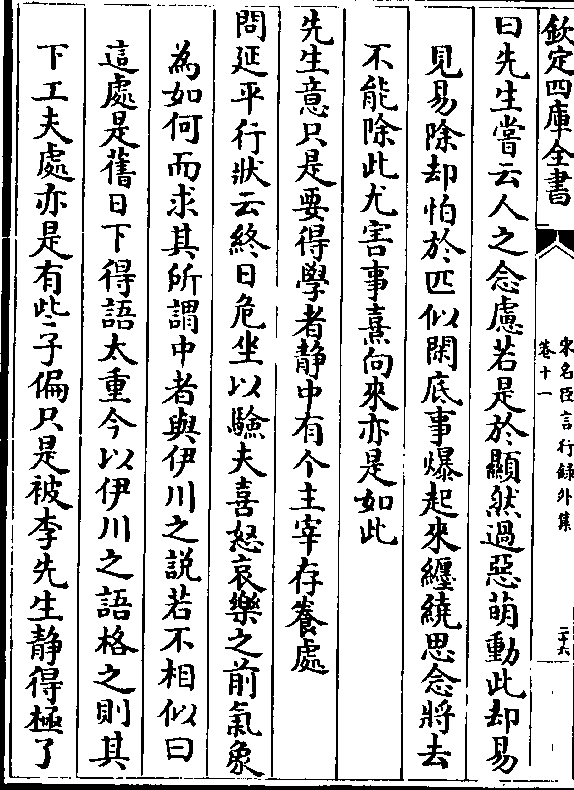 欽定四庫全書
宋名臣言行録外集
卷十一
二十六
曰先生嘗云人之念慮若是於顯然過惡萌動此却易
見易除却怕於匹似閑底事爆起來纏繞思念將去
不能除此尤害事熹向來亦是如此
先生意只是要得學者靜中有个主宰存養處
問延平行狀云終日危坐以驗夫喜怒哀樂之前氣象
為如何而求其所謂中者與伊川之説若不相似曰
這處是舊日下得語太重今以伊川之語格之則其
下工夫處亦是有些子偏只是被李先生靜得極了